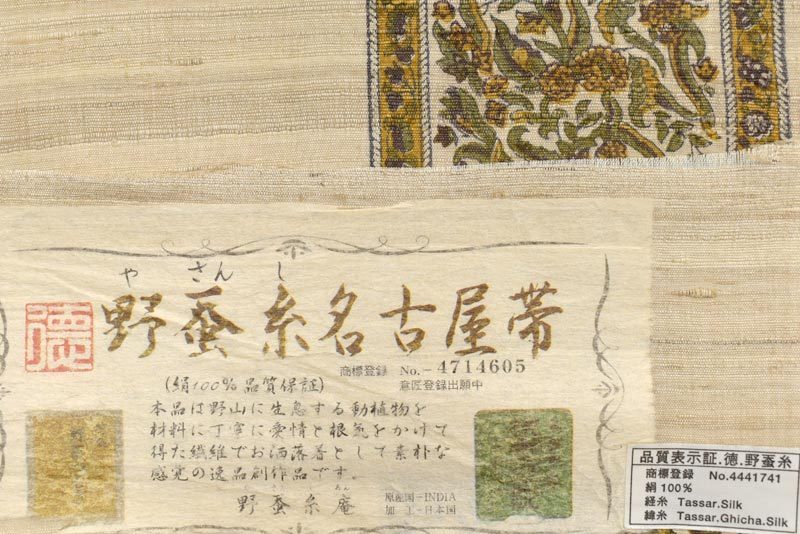 や さん し
徳
野蚕糸名古屋帯
商標登録 No.－4714605
(絹100%品質保証)
意匠登録出願中
本品は野山に生息する動植物を
材料に丁寧に愛情と根気をかけて
得た繊維でお洒落着として素朴な
感覚の逸品創作品です。
あん
野蚕糸庵
原産国－INDIA
加 工－日本国
品質表示証.徳.野蚕糸
商標登録 No.4441741
絹100%
経糸 Tassar.Silk
緯糸 Tassar.Ghicha.Silk